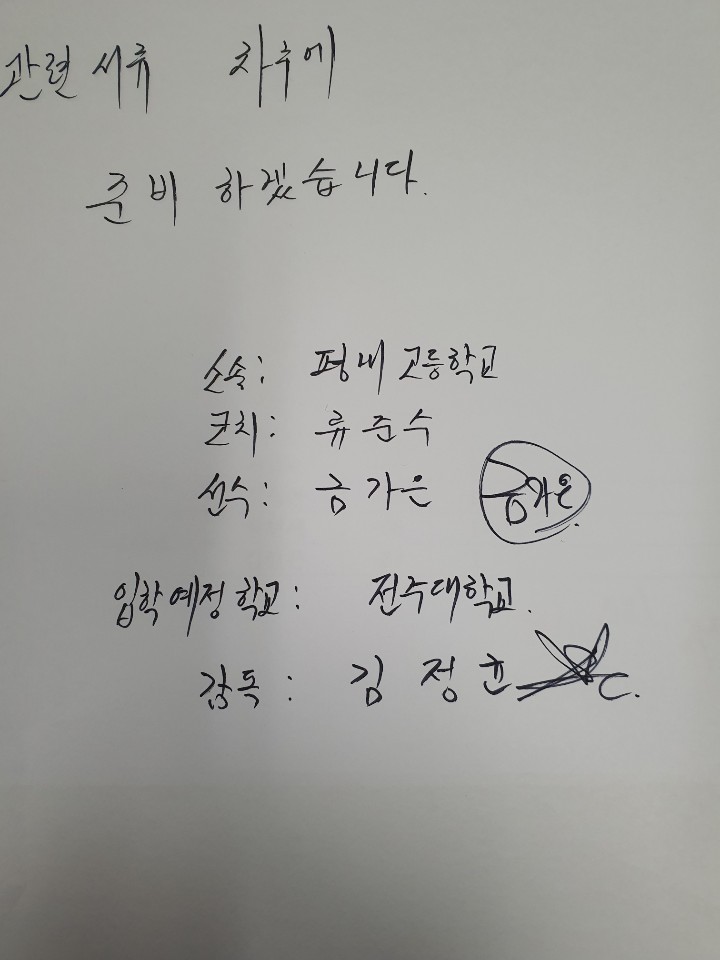 관련서류 차후에
준비 하겠습니다.
소속: 평내고등학교
코치: 류준수
선수: 금가은 금가은
입학예정학교: 전주대학교.
감독: 김정균